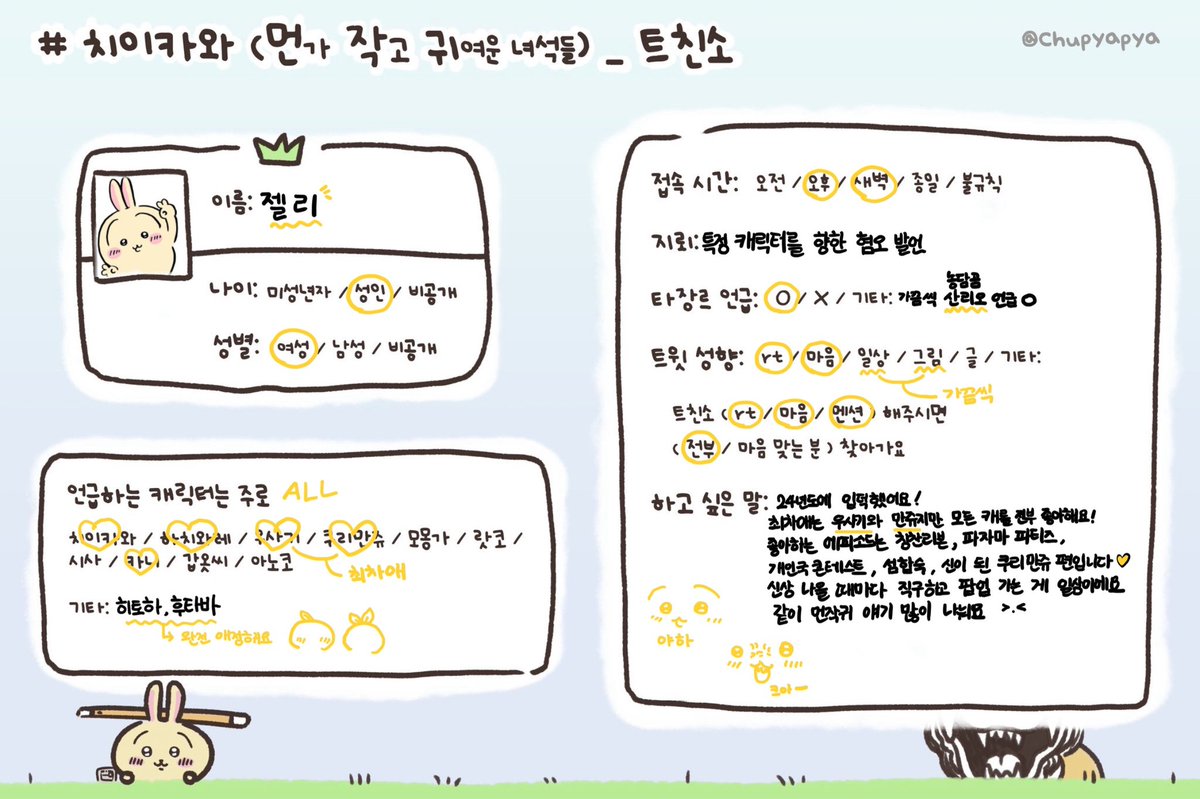 # 치이카와 (먼가 작고 귀여운 녀석들) _ 트친소
@Chupyapya
이름: 젤리
나이: 미성년자 / 성인 / 비공개
성별: 여성 / 남성 / 비공개
언급하는 캐릭터는 주로 ALL
치이카와 / 하치와레 / 우사기 / 쿠리만쥬 / 모몽가 / 랏코 /
시사 / 카니 / 갑옷씨 / 아노코
최차애
기타: 히토하, 후타바
↳ 완전 애정해요
접속 시간: 오전 / 오후 / 새벽 / 종일 / 불규칙
지뢰: 특정 캐릭터를 향한 혐오 발언
농담곰
타장르 언급: O / X / 기타: 가끔씩 산리오 언급 O
트윗 성향: rt / 마음 / 일상 / 그림 / 글 / 기타:
가끔씩
트친소 ( rt / 마음 / 멘션 ) 해주시면
( 전부 / 마음 맞는 분 ) 찾아가요
하고 싶은 말: 24년도에 입덕했어요!
최차애는 우사기와 만쥬지만 모든 캐를 전부 좋아해요!
좋아하는 에피소드는 칭찬리본, 파자마 파티즈,
개인국 콘테스트, 섬합숙, 신이 된 쿠리만쥬 편입니다♡
신상 나올 때마다 직구하고 팝업 가는 게 일상이에요
같이 먼작귀 얘기 많이 나눠요 >.<
야하
크아ー